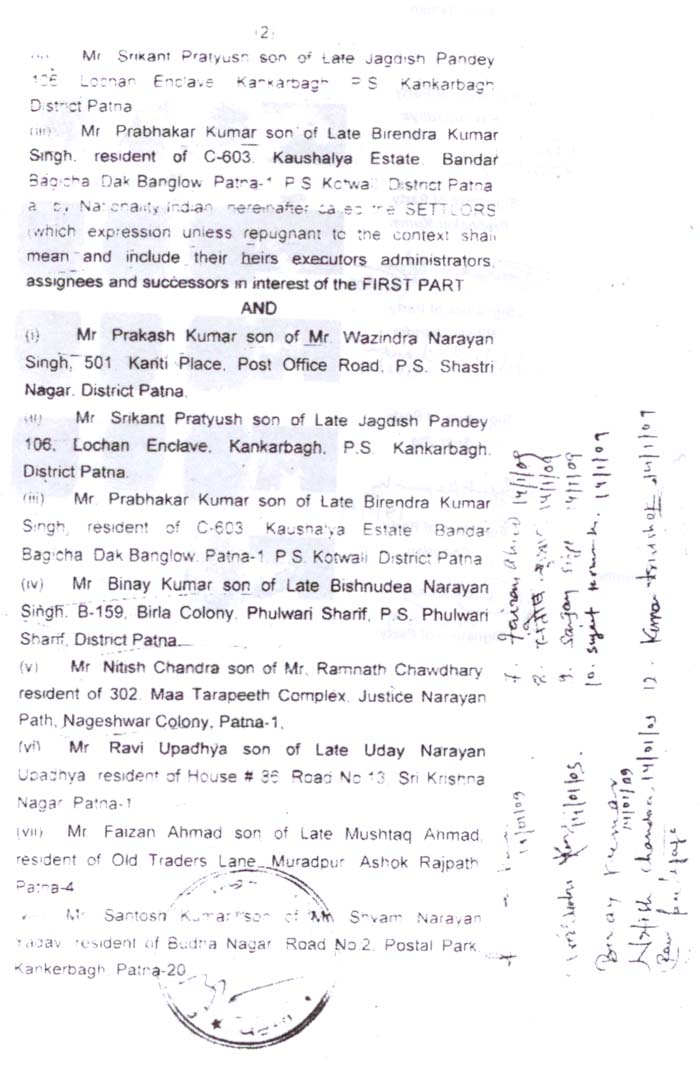 (2)
(ii) Mr Srikant Pratyush son of Late Jagdish Pandey
106 Lochan Enclave Kankarbagh P S Kankarbagh
District Patna
(iii) Mr Prabhakar Kumar son of Late Birendra Kumar
Singh, resident of C-603, Kaushalya Estate, Bandar
Bagicha Dak Banglow Patna-1 P S Kotwali District Patna
all by Nationality Indian hereinafter called the SETTLORS
(which expression unless repugnant to the context shall
mean and include their heirs executors administrators,
assignees and successors in interest of the FIRST PART
AND
(i) Mr Prakash Kumar son of Mr. Wazindra Narayan
Singh, 501 Kanti Place, Post Office Road, P.S. Shastri
Nagar. District Patna.
(ii) Mr Srikant Pratyush son of Late Jagdish Pandey
106, Lochan Enclave, Kankarbagh, P.S. Kankarbagh.
District Patna.
(iii) Mr. Prabhakar Kumar son of Late Birendra Kumar
Singh, resident of C-603 Kaushalya Estate Bandar
Bagicha Dak Banglow, Patna-1, P.S. Kotwali District Patna
(iv) Mr Binay Kumar son of Late Bishnudea Narayan
Singh. B-159, Birla Colony, Phulwari Sharif, P.S. Phulwari
Sharif, District Patna
(v) Mr Nitish Chandra son of Mr. Ramnath Chawdhary
resident of 302. Maa Tarapeeth Complex, Justice Narayan
Path, Nageshwar Colony, Patna-1,
(vi) Mr Ravi Upadhya son of Late Uday Narayan
Upadhya resident of House # 36 Road No 13, Sri Krishna
Nagar Patna-1
(vii) Mr Faizan Ahmad son of Late Mushtaq Ahmad,
resident of Old Traders Lane, Muradpur Ashok Rajpath
Patna-4
Mr Santosh Kumar son of Mr Shyam Narayan
Yadav resident of Budha Nagar Road No.2, Postal Park
Kankerbagh, Patna-20
7. Faizan Ahmad 14/1/09
8. 14/1/09
9. Sanjay 14/1/09
10. Sujeet Kumar 14/1/09
12. Kumar 14/1/09
14/01/09
14/01/09
Binay Kumar
14/01/09
Nitish Chandra 14/01/09